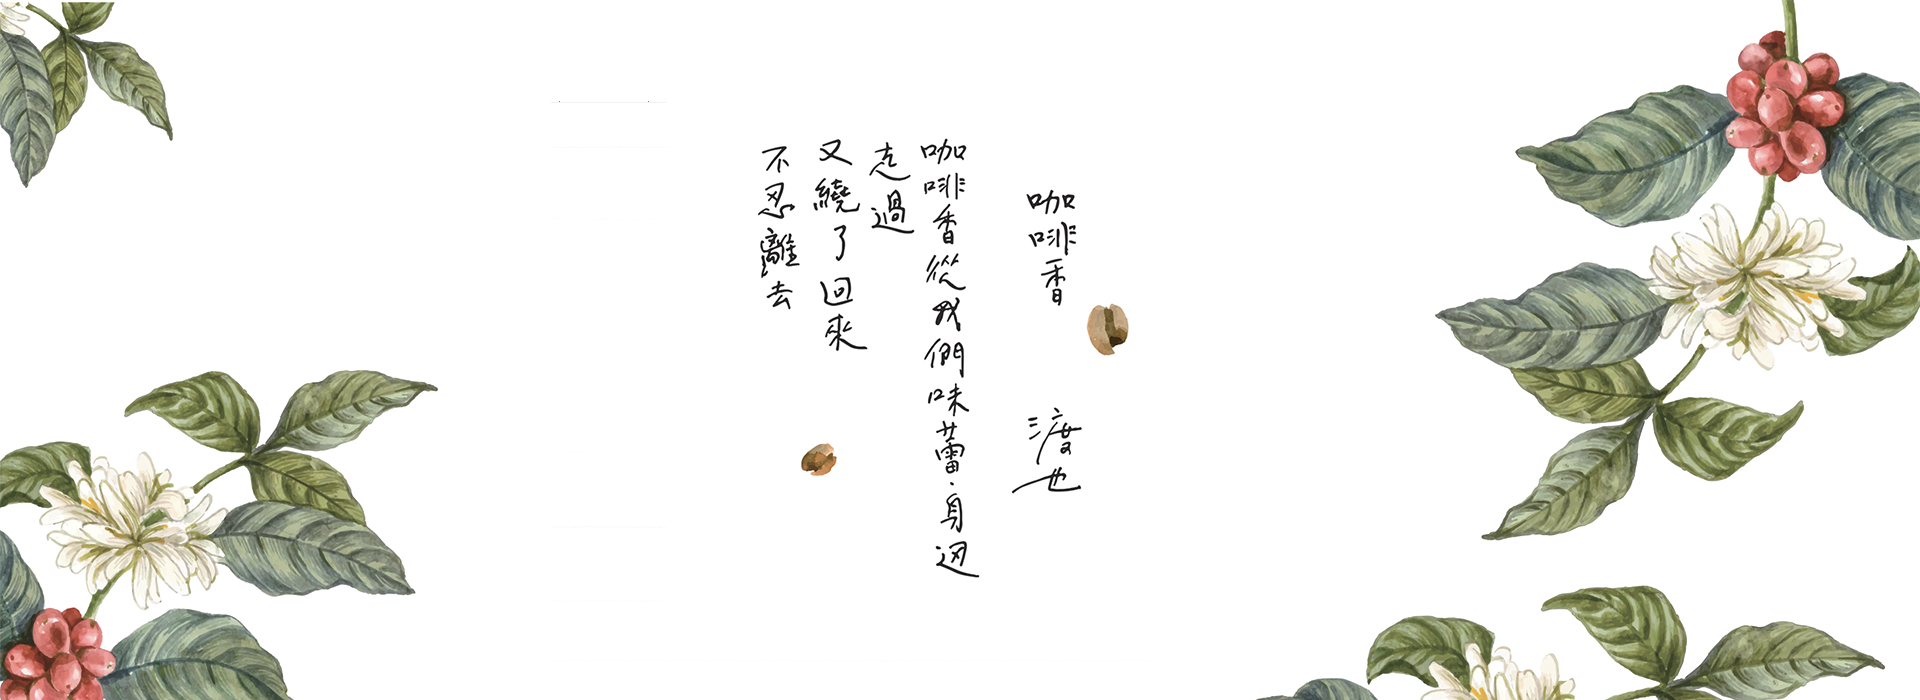 咖啡香
渡也
咖啡香從我們味蕾身邊
走過
又繞了回來
不忍離去